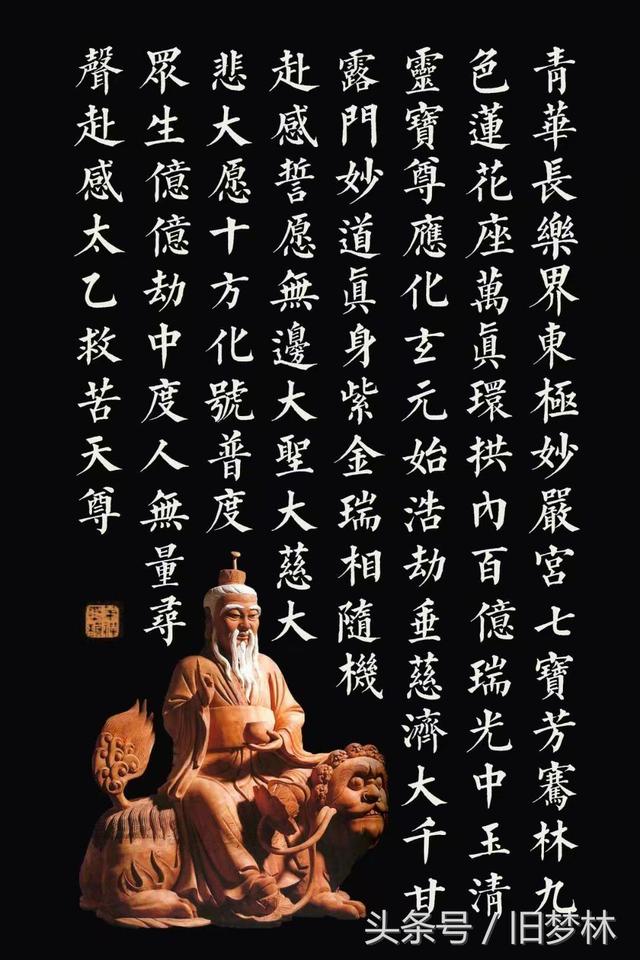 青華長樂界東極妙嚴宮七寶芳騫林九
色蓮花座萬眞環拱內百億瑞光中玉清
靈寶尊應化玄元始浩劫垂慈濟大千甘
露門妙道眞身紫金瑞相隨機
赴感誓愿無邊大聖大慈大
悲大愿十方化號普度
眾生億億劫中度人無量尋
聲赴感太乙救苦天尊
头条号 / 旧梦林